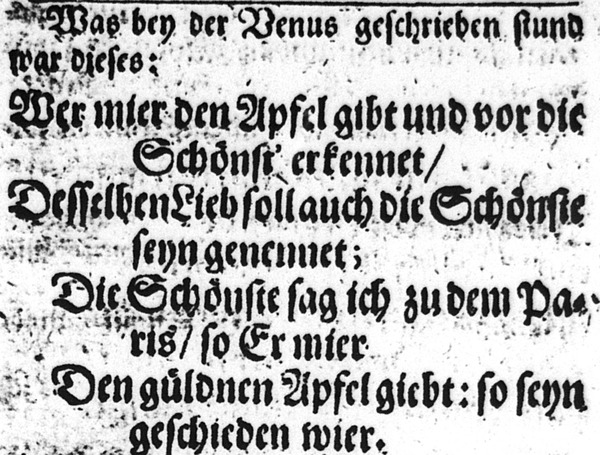 Was bey der Venus geschrieben stund
war dieses:
Wer mier den Apfel gibt und vor die
Schönst' erkennet/
Desselben Lieb soll auch die Schönste
seyn genennet;
Die Schönste sag ich zu dem Pa-
ris/ so Er mier
Den güldnen Apfel giebt: so seyn
geschieden wier.